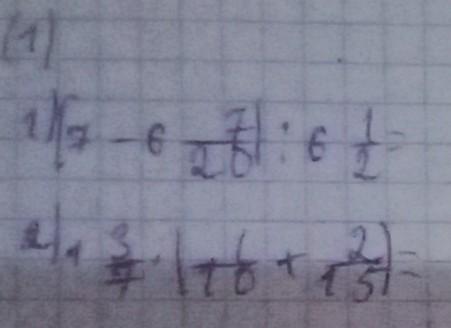 (1)
1) (7 - 6 7/20) : 6 1/2 =
2) 1 3/7 · (1/10 + 2/15) =